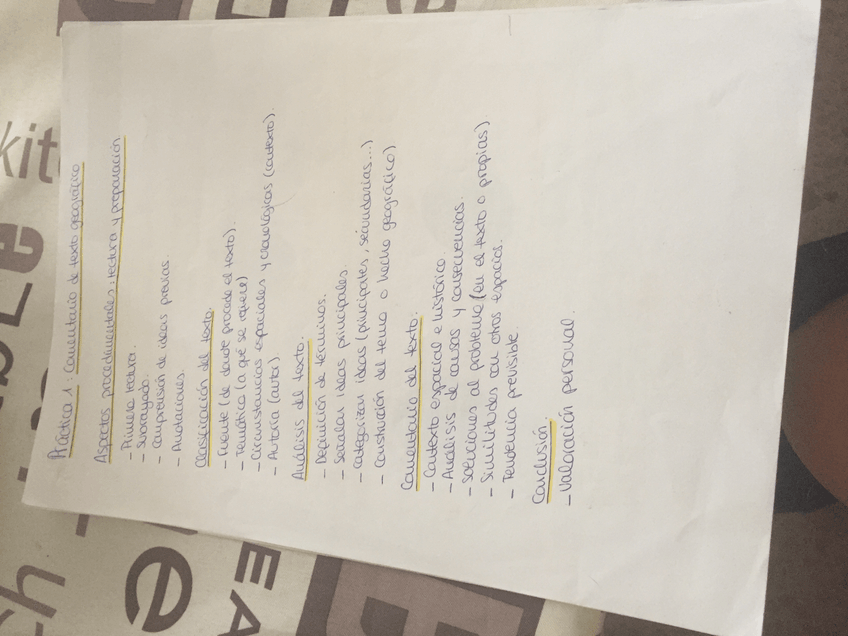 Práctica 1: Comentario de texto geográfico
Aspectos procedimentales: lectura y preparación
- Primera lectura.
- Subrayado.
- Comprensión de ideas previas.
- Anotaciones.
Clasificación del texto.
- Fuente (de donde procede el texto).
- Temática (a qué se refiere)
- Circunstancias espaciales y cronológicas (contexto).
- Autoría (autor)
Análisis del texto.
- Definición de términos.
- Señalar ideas principales.
- Categorizar ideas (principales, secundarias...)
- Construcción del tema o hecho geográfico)
Comentario del texto.
- Contexto espacial e histórico.
- Análisis de causas y consecuencias.
- Soluciones al problema (en el texto o propias)
- Similitudes con otros espacios.
- Tendencia previsible.
Conclusión.
- Valoración personal.
kit
EA